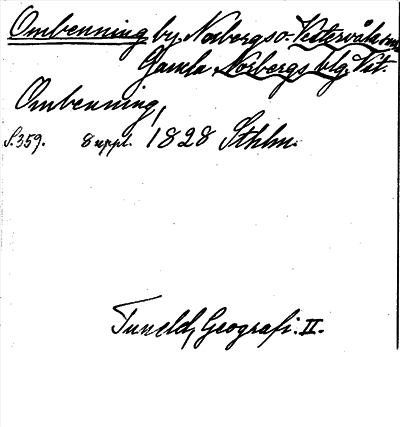 Ombenning by, Norbergs o. Västervåla snr
Gamla Norbergs blg. Väst.
Ombenning,
S. 359. 8 uppl. 1828 Sthlm.
Tuneld, Geografi. II.